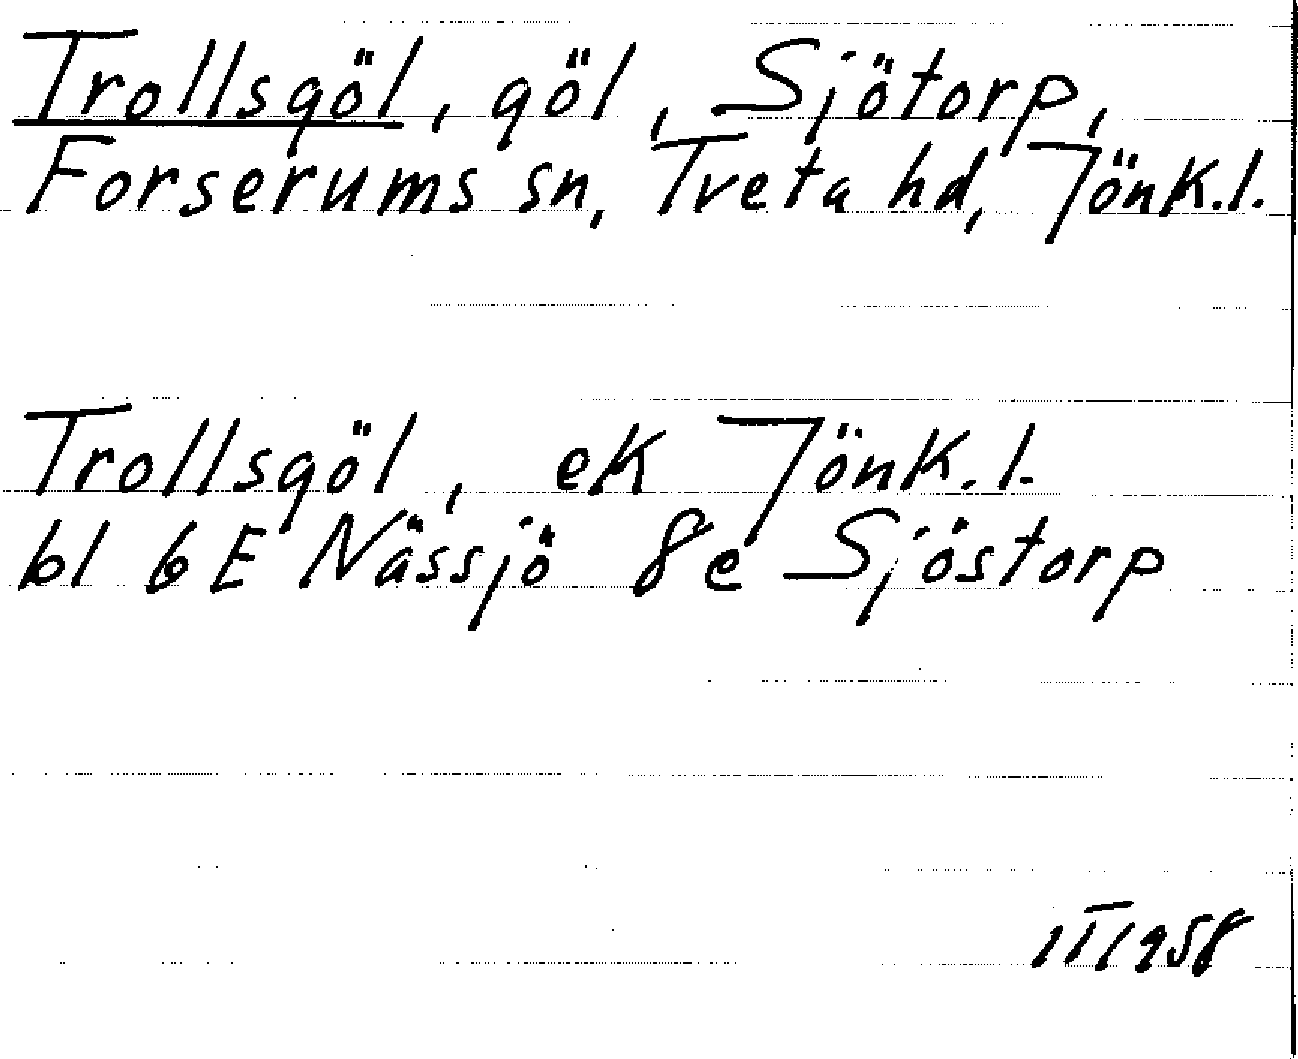 Trollsgöl, göl, Sjötorp,
Forserums sn, Tveta hd, Jönk.l.
Trollsgöl, ek Jönk.l.
bl 6E Nässjö 8e Sjöstorp
1958